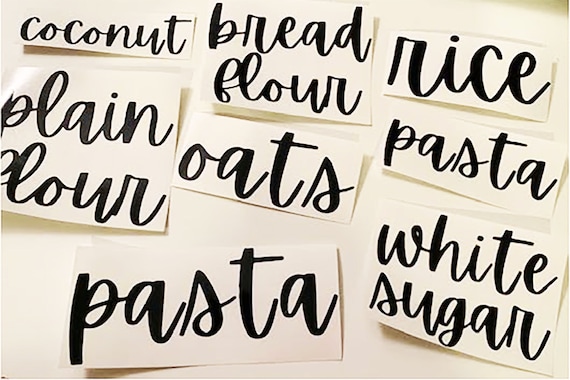 coconut
bread
flour
rice
plain
flour
oats
pasta
pasta
white
sugar